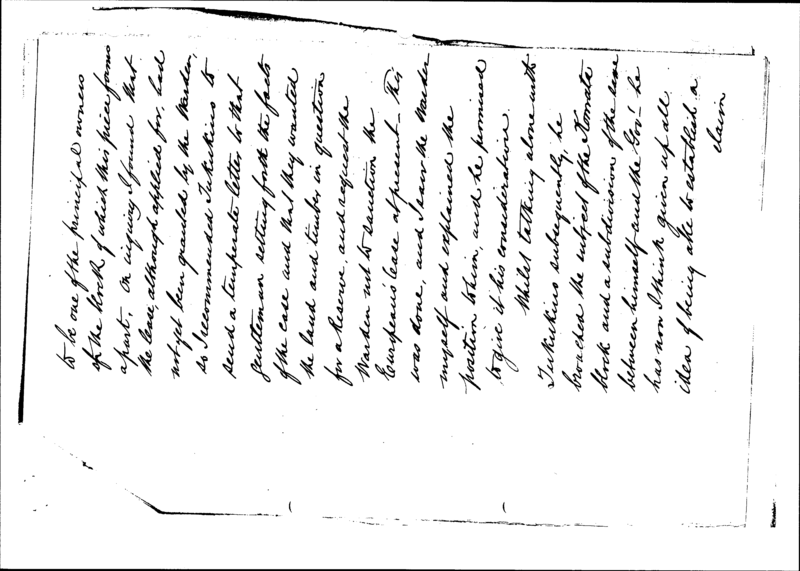 to be one of the principal owners
of the block of which this piece forms
a part. On inquiry I found that
the lease, although applied for, had
not yet been granted by the Warden,
so I recommended Tukukino to
send a temperate letter to that
Gentleman setting forth the facts
of the case and that they wanted
the land and timber in question
for a Reserve, and request the
Warden not to sanction the
European's lease at present - This
was done, and I saw the Warden
myself and explained the
position to him, and he promised
to give it his consideration.
Whilst talking alone with
Tukukino subsequently, he
broached the subject of the Komata
block and a subdivision of the same
between himself and the Govt. he
has now I think given up all
idea of being able to establish a
claim